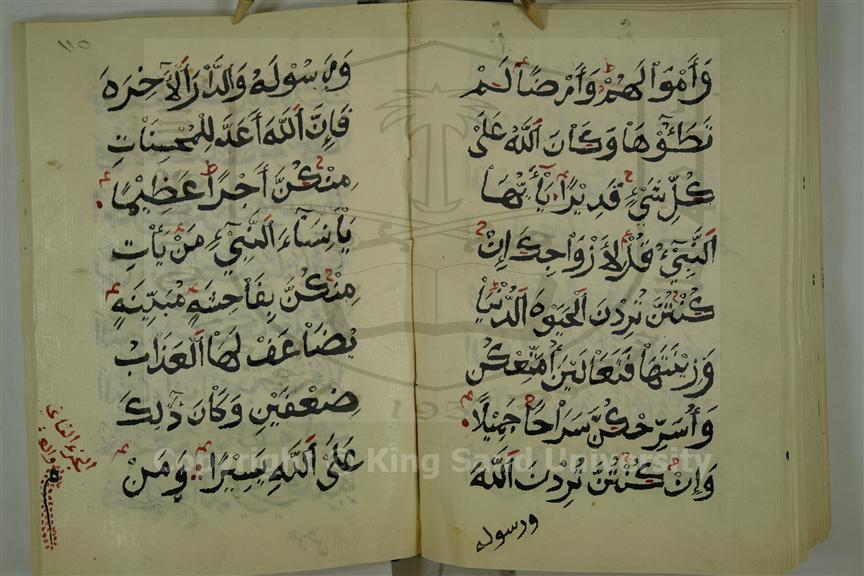 وَأَمْوَالَهُمْ وَأَرْضًا لَمْ
تَطَئُوهَا وَكَانَ اللَّهُ عَلَى
كُلِّ شَيْءٍ قَدِيرًا يَٰأَيُّهَا
النَّبِيءُ قُل لِأَزْوَاجِكَ إِنْ
كُنْتُنَّ تُرِدْنَ الْحَيَوٰةَ الدُّنْيَا
وَزِينَتَهَا فَتَعَالَيْنَ أُمَتِّعْكُنَّ
وَأُسَرِّحْكُنَّ سَرَاحًا جَمِيلًا
وَإِنْ كُنْتُنَّ تُرِدْنَ اللَّهَ
ورسوله
١١٥
وَرَسُولَهُ وَالدَّارَ الْآخِرَةَ
فَإِنَّ اللَّهَ أَعَدَّ لِلْمُحْسِنَاتِ
مِنْكُنَّ أَجْرًا عَظِيمًا
يَٰنِسَآءَ النَّبِيءِ مَنْ يَأْتِ
مِنْكُنَّ بِفَاحِشَةٍ مُبَيِّنَةٍ
يُضَاعَفْ لَهَا الْعَذَابُ
ضِعْفَيْنِ وَكَانَ ذَٰلِكَ
عَلَى اللَّهِ يَسِيرًا وَمَنْ
الجزء الثاني
Copyright © King Saud University
195